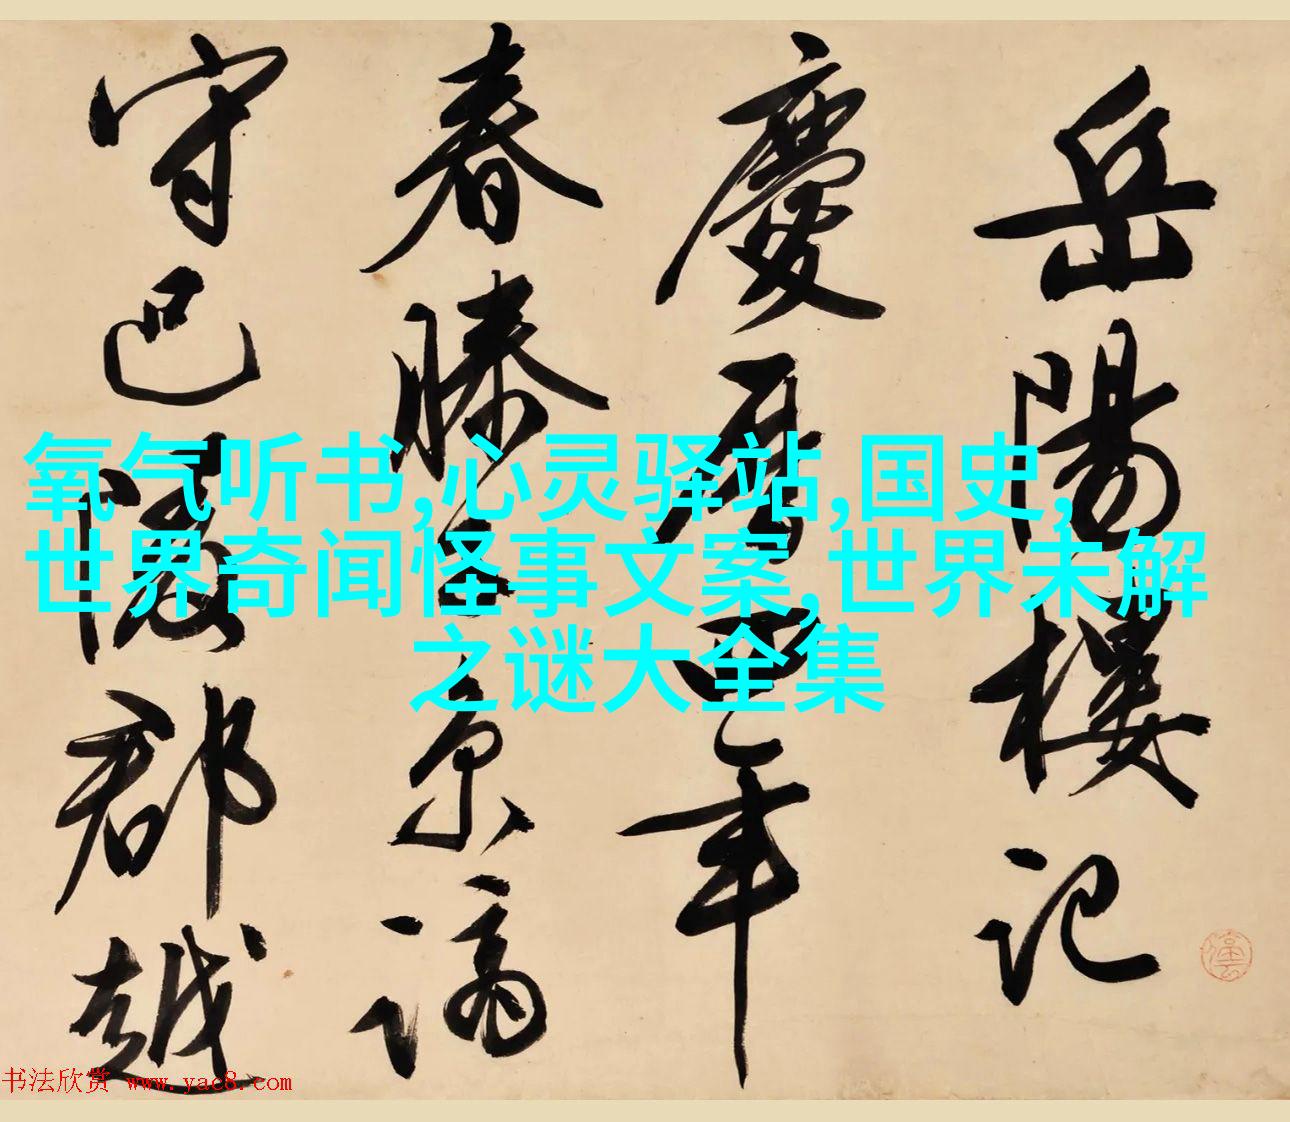 岳陽樓記
慶曆四年
春滕子京謫
守巴陵郡越
氧气听书,心灵驿站,国史,
世界奇闻怪事文案,世界未解
之谜大全集
书法欣赏 www.yac8.com